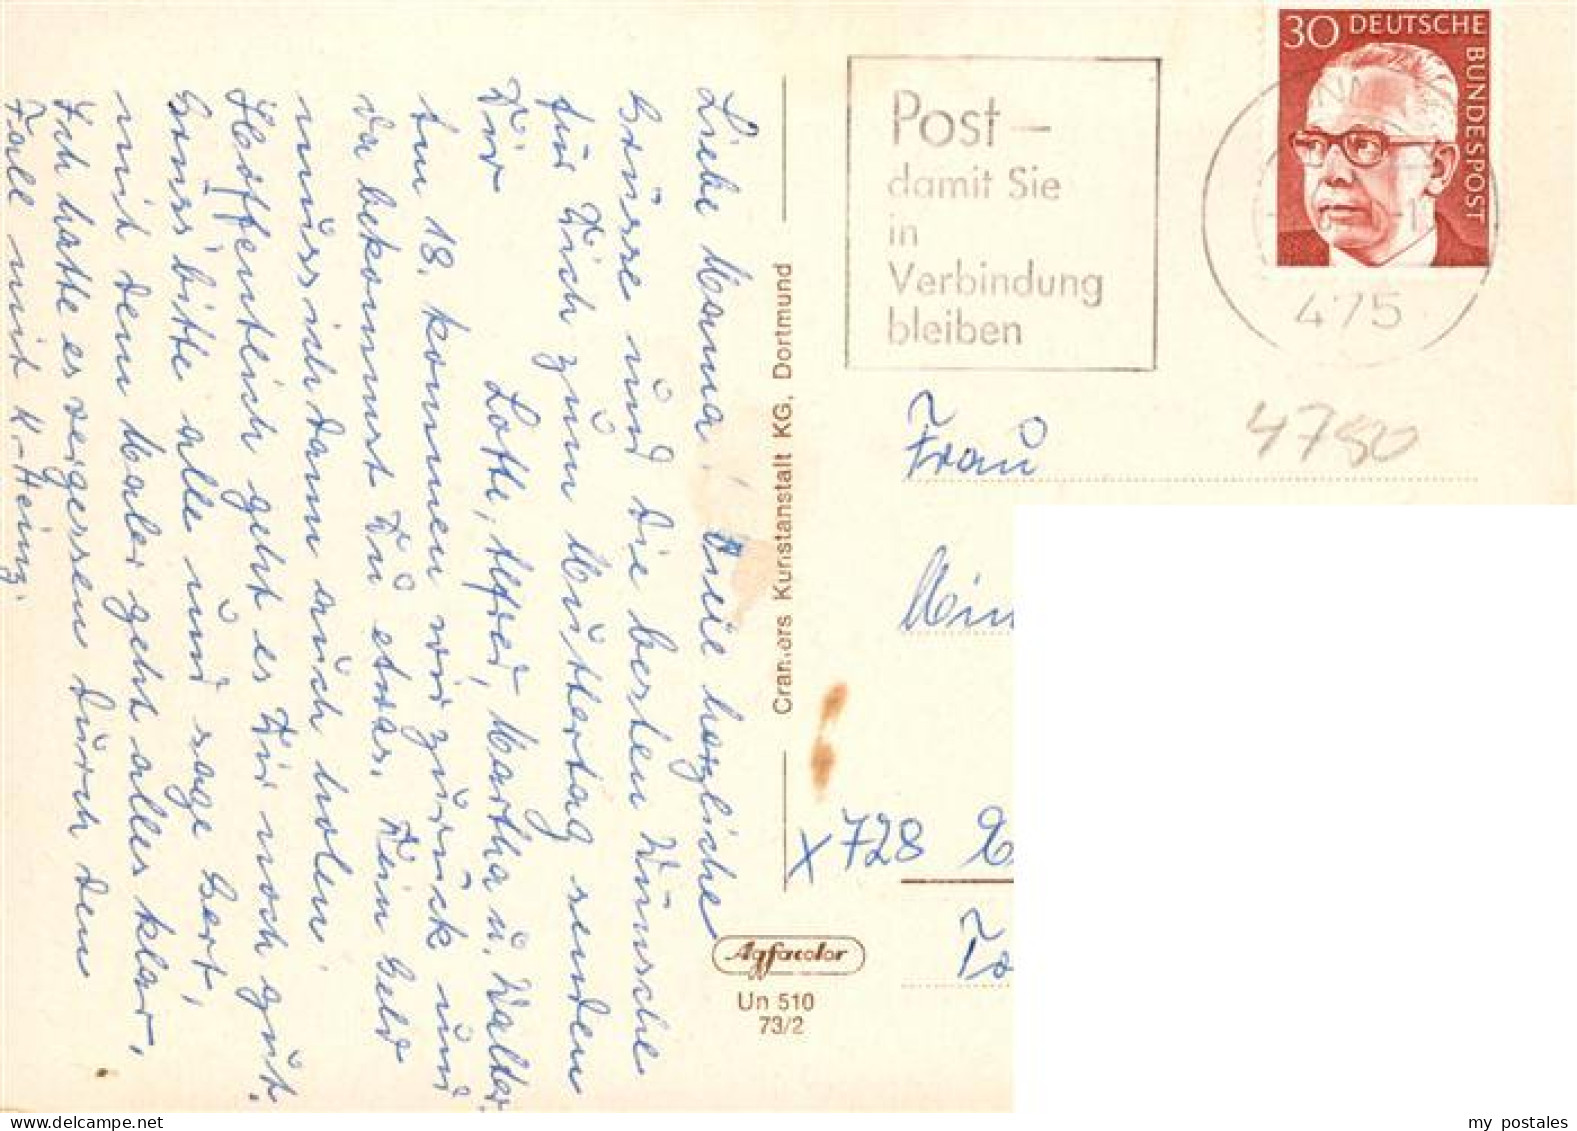 Liebe Mama! Viele herzliche
Grüsse und die besten Wünsche
für Dich zum Muttertag senden
Dir Lotte, Alfred, Martha u. Walter.
Am 18. kommen wir zurück und
da bekommst Du etwas. Dein Geld
muss ich dann auch holen.
Hoffentlich geht es Dir noch gut.
Grüss bitte alle und sage Gert,
mit dem Maler geht alles klar,
Ich hatte es vergessen durch den
Fall mit K-Heinz.
Cramers Kunstanstalt KG, Dortmund
Agfacolor
Un 510
73/2
Post –
damit Sie
in
Verbindung
bleiben
30 DEUTSCHE
BUNDESPOST
475
4780
Frau
x 728
my postales